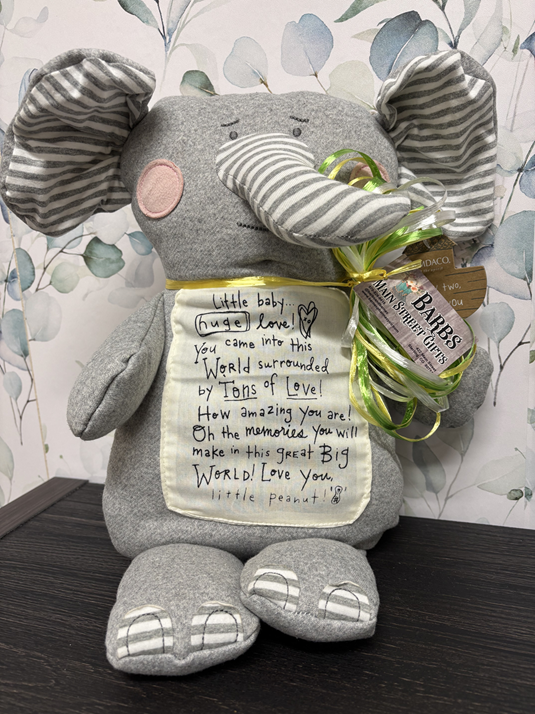 Little baby...
huge love!
You came into this
World surrounded
by Tons of Love!
How amazing you are!
Oh the memories you will
make in this great Big
World! Love you,
little peanut!
DACO.
two,
you
BARBS
MAIN STREET GIFTS